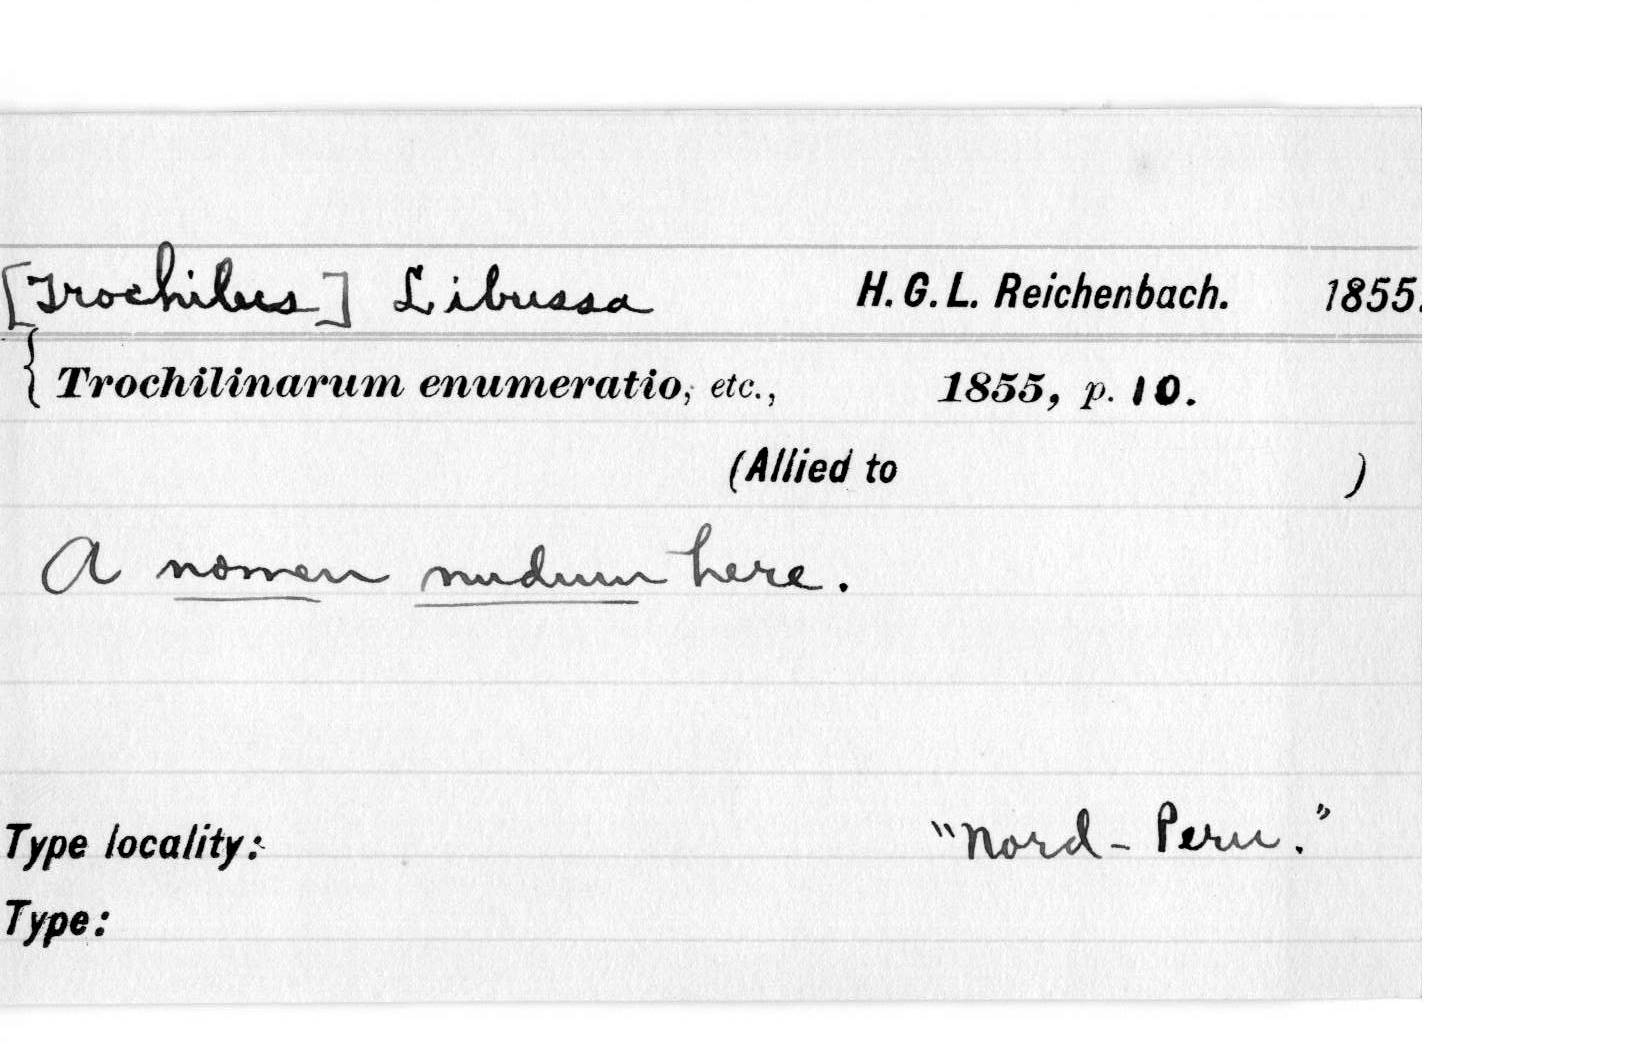 [Trochilus] Libussa H. G. L. Reichenbach. 1855.
{ Trochilinarum enumeratio, etc., 1855, p. 10.
(Allied to )
A nomen nudum here.
Type locality: "Nord-Peru."
Type: